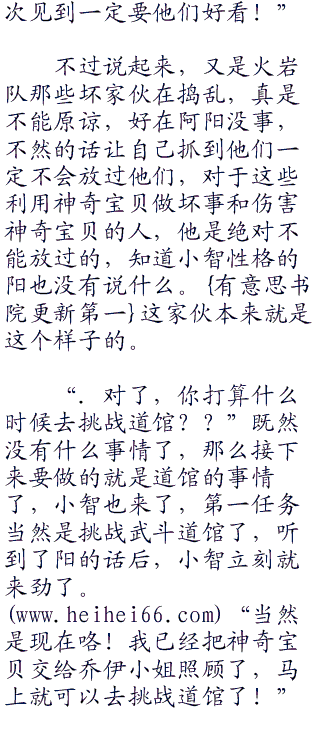 次见到一定要他们好看！”
不过说起来，又是火岩
队那些坏家伙在捣乱，真是
不能原谅，好在阿阳没事，
不然的话让自己抓到他们一
定不会放过他们，对于这些
利用神奇宝贝做坏事和伤害
神奇宝贝的人，他是绝对不
能放过的，知道小智性格的
阳也没有说什么。{有意思书
院更新第一}这家伙本来就是
这个样子的。
“．对了，你打算什么
时候去挑战道馆？？”既然
没有什么事情了，那么接下
来要做的就是道馆的事情
了，小智也来了，第一任务
当然是挑战武斗道馆了，听
到了阳的话后，小智立刻就
来劲了。
(www.heihei66.com)“当然
是现在咯！我已经把神奇宝
贝交给乔伊小姐照顾了，马
上就可以去挑战道馆了！”